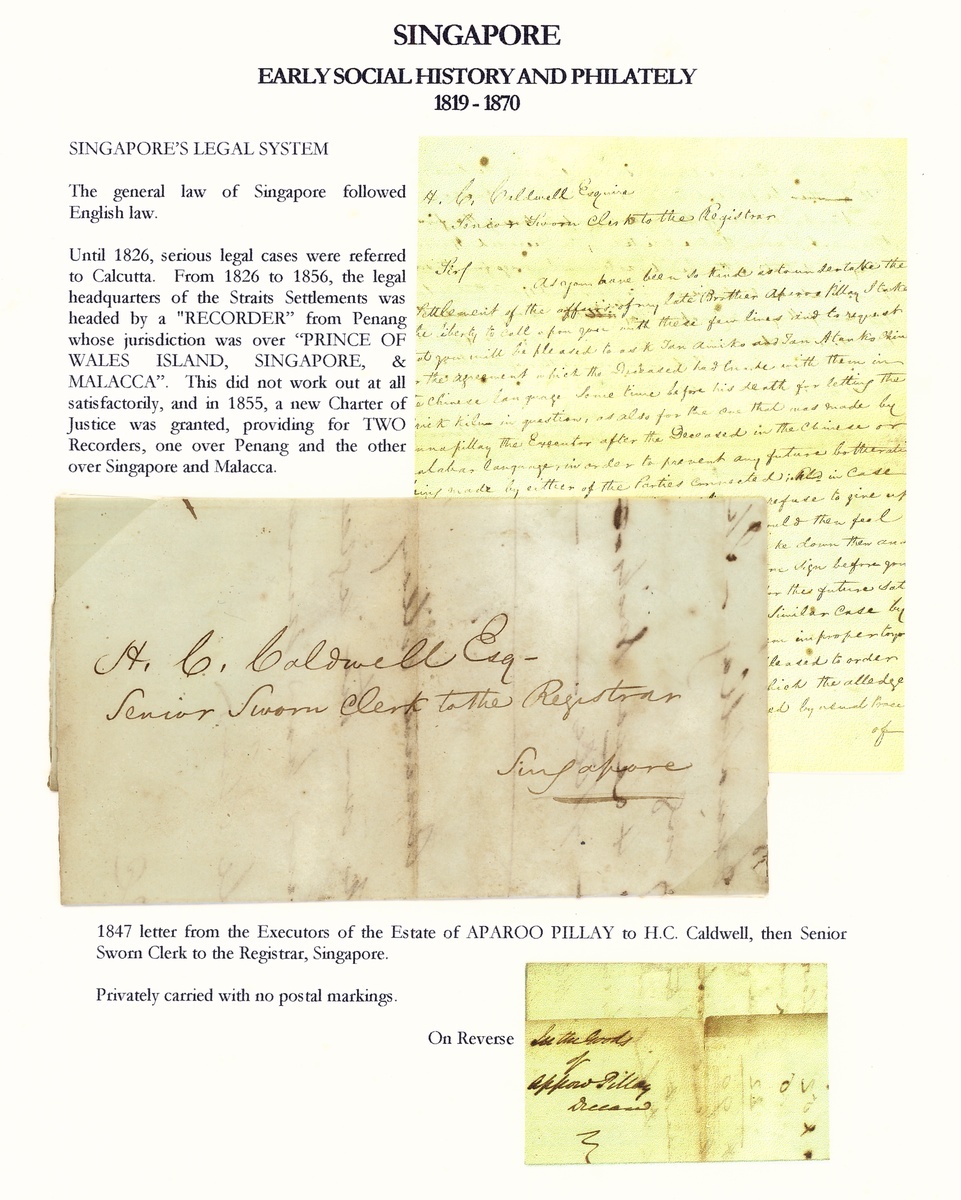 SINGAPORE
EARLY SOCIAL HISTORY AND PHILATELY
1819 - 1870
SINGAPORE'S LEGAL SYSTEM
The general law of Singapore followed
English law.
Until 1826, serious legal cases were referred
to Calcutta. From 1826 to 1856, the legal
headquarters of the Straits Settlements was
headed by a "RECORDER" from Penang
whose jurisdiction was over "PRINCE OF
WALES ISLAND, SINGAPORE, &
MALACCA". This did not work out at all
satisfactorily, and in 1855, a new Charter of
Justice was granted, providing for TWO
Recorders, one over Penang and the other
over Singapore and Malacca.
H. C. Caldwell Esquire
Senior Sworn Clerk to the Registrar
As you have been so kind as to undertake the
Settlement of the affairs of my late Brother Aparoo Pillay I take
liberty to call upon you with these few lines and to request
you will be pleased to ask Tan and Tan
the agreement which the Deceased had made with them in
Chinese language some time before his death for letting the
kiln in question, as also for the one that was made by
the Executor after the Deceased in the Chinese or
language, in order to prevent any future
made by either of the Parties connected in case
refuse to give up
then feel
down then
sign before you
for the future
similar case by
improper
pleased to order
which the alledge
by usual
of
H. C. Caldwell Esq-
Senior Sworn Clerk to the Registrar
Singapore
1847 letter from the Executors of the Estate of APAROO PILLAY to H.C. Caldwell, then Senior
Sworn Clerk to the Registrar, Singapore.
Privately carried with no postal markings.
On Reverse
In the Goods
of
Appow Pillay
Deceased